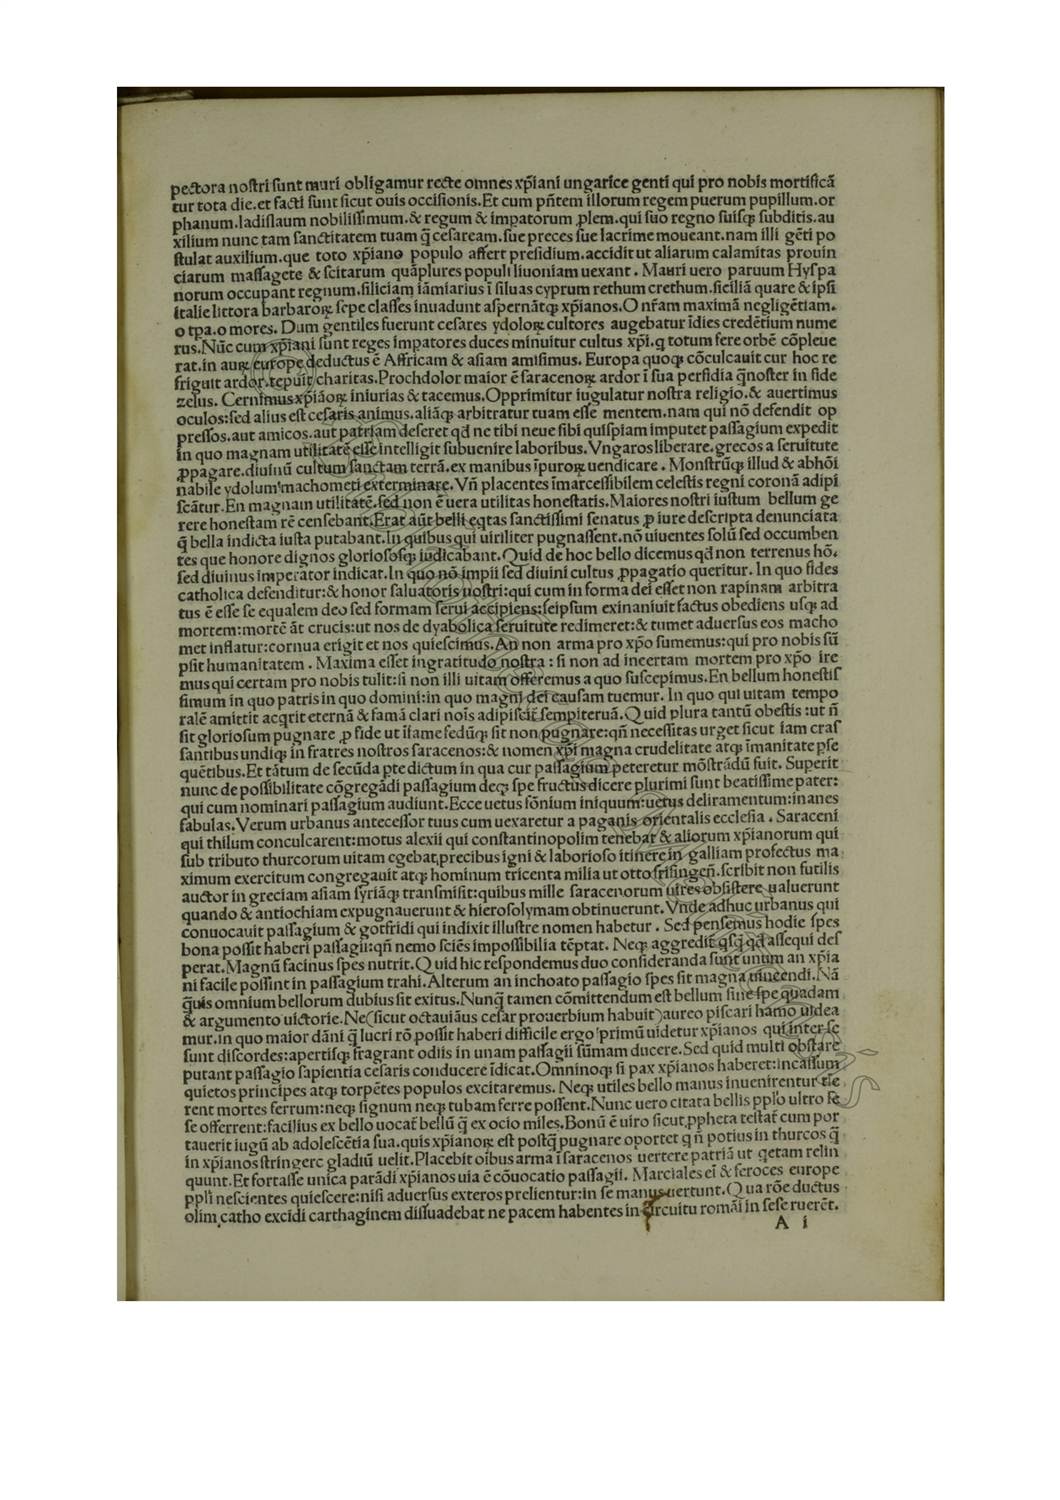 pectora nostri sunt muri obligamur recte omnes xp̄iani ungarice genti qui pro nobis mortificā
tur tota die.et facti sunt sicut ouis occisionis.Et cum pn̄tem illorum regem puerum pupillum.or
phanum.ladislaum nobilissimum.& regum & impatorum ꝓlem.qui suo regno suisqꝫ subditis.au
xilium nunc tam sanctitatem tuam q̄ cesaream.sue preces sue lacrime moueant.nam illi gēti po
stulat auxilium.que toto xp̄iano populo affert presidium.accidit ut aliarum calamitas prouin
ciarum massagete & scitarum quāplures populi liuoniam uexant . Mauri uero paruum Hyspa
norum occupant regnum.siliciam iāmiarius ī siluas cyprum rethum crethum.siciliā quare & ipsi
italie littora barbaroꝝ sepe classes inuadunt aspernātqꝫ xp̄ianos.O nr̄am maximā negligētiam.
o tpa.o mores. Dum gentiles fuerunt cesares ydoloꝝ cultores augebatur īdies credētium nume
rus.Nūc cum xp̄iani sunt reges impatores duces minuitur cultus xp̄i.q totum fere orbē cōpleue
rat.in auꝝ europe deductus ē Affricam & asiam amisimus. Europa quoqꝫ cōculcauit cur hoc re
friguit ardor.tepuit charitas.Prochdolor maior ē saracenoꝝ ardor ī sua perfidia q̄noster in fide
zelus. Cernimus xp̄iāoꝝ iniurias & tacemus.Opprimitur iugulatur nostra religio.& auertimus
oculos:sed alius est cesaris animus.aliāqꝫ arbitratur tuam esse mentem.nam qui nō defendit op
pressos.aut amicos.aut patriam deseret qd ne tibi neue sibi quispiam imputet passagium expedit
in quo magnam utilitatē esse intelligit subuenire laboribus.Vngaros liberare.grecos a seruitute
ꝓpagare.diuinū cultum sanctam terrā.ex manibus īpuroꝝ uendicare . Monstrūqꝫ illud & abhōi
nabile ydolum machometi exterminare.Vn̄ placentes īmarcessibilem celestis regni coronā adipi
scātur.En magnam utilitatē.sed non ē uera utilitas honestatis.Maiores nostri iustum bellum ge
rere honestam rē censebant.Erat aūt belli eqtas sanctissimi senatus ꝓ iure descripta denunciata
q̄ bella indicta iusta putabant.In quibus qui uiriliter pugnassent.nō uiuentes solū sed occumben
tes que honore dignos gloriososqꝫ iudicabant.Quid de hoc bello dicemus qd non terrenus hō.
sed diuinus imperator indicat.In quo nō impii sed diuini cultus ꝓpagatio queritur. In quo fides
catholica defenditur:& honor saluatoris nostri:qui cum in forma dei esset non rapinam arbitra
tus ē esse se equalem deo sed formam serui accipiens:seipsum exinaniuit factus obediens usqꝫ ad
mortem:mortē āt crucis:ut nos de dyabolica seruitute redimeret:& tumet aduersus eos macho
met inflatur:cornua erigit et nos quiescimus.An non arma pro xp̄o sumemus:qui pro nobis sū
psit humanitatem . Maxima esset ingratitudo nostra : si non ad incertam mortem pro xp̄o ire
mus qui certam pro nobis tulit:si non illi uitam offeremus a quo suscepimus.En bellum honestis
simum in quo patris in quo domini:in quo magni dei causam tuemur. In quo qui uitam tempo
ralē amittit acqrit eternā & famā clari nois adipiscit sempiteruā.Quid plura tantū obestis :ut n̄
sit gloriosum pugnare ꝓ fide ut īfame fedūqꝫ sit non pugnare:qn̄ necessitas urget sicut iam cras
santibus undiqꝫ in fratres nostros saracenos:& nomen xp̄i magna crudelitate atqꝫ īmanitate ꝑse
quētibus.Et tātum de secūda ꝑte dictum in qua cur passagium peteretur mōstrādū fuit. Superit
nunc de possibilitate cōgregādi passagium deqꝫ spe fructus dicere plurimi sunt beatissime pater:
qui cum nominari passagium audiunt.Ecce uetus sōnium iniquum:uetus deliramentum:inanes
fabulas.Verum urbanus antecessor tuus cum uexaretur a paganis orientalis ecclesia . Saraceni
qui thilum conculcarent:motus alexii qui constantinopolim tenebat & aliorum xp̄ianorum qui
sub tributo thurcorum uitam egebat,precibus igni & laborioso itinere in galliam profectus ma
ximum exercitum congregauit atqꝫ hominum tricenta milia ut otto frisingen̄.scribit non futilis
auctor in greciam asiam syriāqꝫ transmisit:quibus mille saracenorum uires obsistere ualuerunt
quando & antiochiam expugnauerunt & hierosolymam obtinuerunt.Vnde adhuc urbanus qui
conuocauit passagium & gotfridi qui indixit illustre nomen habetur . Sed pensemus hodie spes
bona possit haberi passagii:qn̄ nemo sciēs impossibilia tēptat. Neqꝫ aggredit qsq̄ qd assequi des
perat.Magnū facinus spes nutrit.Quid hic respondemus duo consideranda sunt unum an xp̄ia
ni facile possint in passagium trahi.Alterum an inchoato passagio spes sit magna uincendi.Nā
q̄uis omnium bellorum dubius sit exitus.Nunq̄ tamen cōmittendum est bellum sine spe quadam
& argumento uictorie.Ne(sicut octauiāus cesar prouerbium habuit)aureo piscari hamo uidea
mur.in quo maior dāni q̄ lucri rō possit haberi difficile ergo primū uidetur xp̄ianos qui inter se
sunt discordes:apertisqꝫ fragrant odiis in unam passagii sūmam ducere.Sed quid multi obstare
putant passagio sapientia cesaris conducere īdicat.Omninoqꝫ si pax xp̄ianos haberet:incassum
quietos principes atqꝫ torpētes populos excitaremus. Neqꝫ utiles bello manus inuenirentur tīe
rent mortes ferrum:neqꝫ signum neqꝫ tubam ferre possent.Nunc uero citata bellis pplo ultro se
se offerrent:facilius ex bello uocat̄ bellū q̄ ex ocio miles.Bonū ē uiro sicut ꝓpheta testat̄ cum por
tauerit iugū ab adolescētia sua.quis xp̄ianoꝝ est postq̄ pugnare oportet q n̄ potius in thurcos q̄
in xp̄ianos stringere gladiū uelit.Placebit oibus arma ī saracenos uertere patriā ut getam relin
quunt.Et fortasse unica parādi xp̄ianos uia ē cōuocatio passagii. Marciales ei & feroces europe
ppli nescientes quiescere:nisi aduersus exteros prelientur:in se manus uertunt.Qua rōe ductus
olim catho excidi carthaginem dissuadebat ne pacem habentes in circuitu romāi in sese ruerēt.
A i